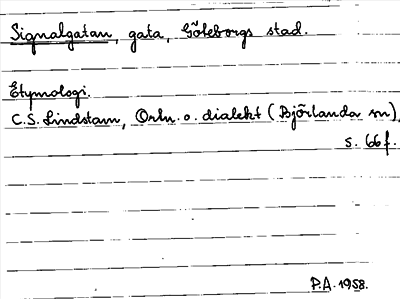 Signalgatan, gata, Göteborgs stad.
Etymologi.
C.S. Lindstam, Ortn. o. dialekt (Björlanda sn),
s. 66 f.
P.A. 1958.